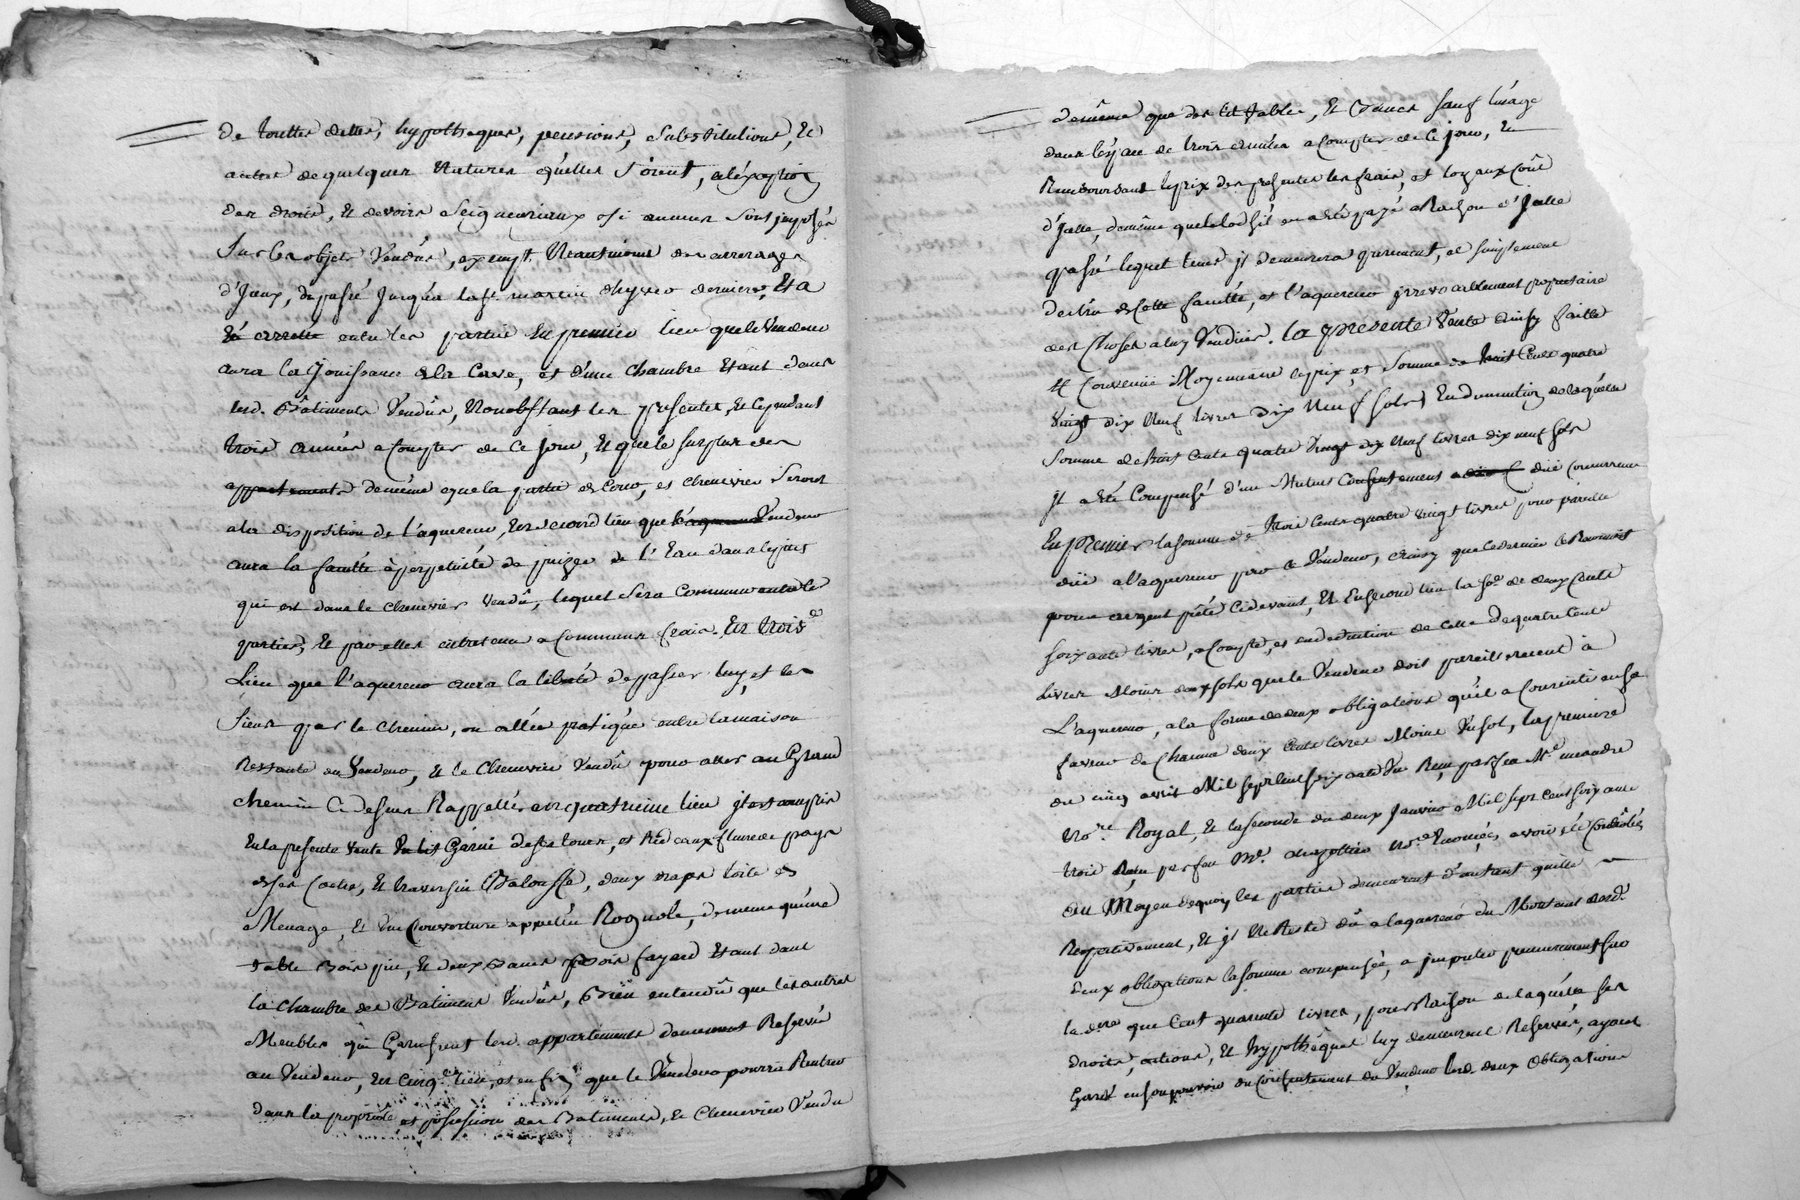 de touttes dettes, hypotheques, pensions, substitutions, et
autres de quelques Natures qu'elles Soient, a l'éxeption
des droits, et devoirs Seigneuriaux si aucuns sont imposés
Sur les objets Vendûs, exempt Neantmoins des arrerages
d'Jceux, du passé Jusqu'a la st martin d'hyvero dernier, Et a
été arretté entre les parties En premier lieu que le Vendeur
aura la Jouissance de la Cave, et d'une chambre Etant dans
lesd. Bâtiments Vendûs, Nonobstant les presentes, et cependant
trois années a Compter de ce jour, et que le surplus des
appartements demême que la partie de Cour, et chenevier Seront
a la disposition de l'aquereur, En second lieu que le Vendeur
aura la faculté à perpetuité de puizer de l'Eau dans le puits
qui est dans le chenevier vendû, lequel sera Commun entre les
parties, et par elles entretenu a communs fraix. En trois.e
Lieu que l'aquereur aura la liberté de passer luy, et les
Siens par le chemin, ou allée pratiquée entre la maison
Restante au Vendeur, et le Chenevier Vendû pour aller au Grand
chemin Ci dessus Rappellé. en quatrieme lieu il est compris
En la presente vente Un lit Garni de ses tours, et Rideaux
et un Couverture appellée Rognole, de meme qu'une
table Bois pin, et deux Bancs Bois fayard Etant dans
la chambre des Batiments Vendûs, Bien entendû que les autres
Meubles qui Garnissent les. appartements demeurent Reservés
au Vendeur, En cinq.e lieu, et enfin que le Vendeur pourra Rentrer
dans la proprieté et possession des Batiments, et Chenevier Vendu
demême que des lit table, et Bancs sauf l'usage
dans l'espace de trois années a Compter de Ce jour, en
Remboursant le prix des presentes les frais, et loyaux Coûts
d'Jcelle, demême que le lods s'il en a été payé a Raison d'Jcelle
passé lequel tems il demeurera purement, et simplement
dechu de Cette faculté, et l'aquereur irrevocablement proprietaire
des Choses a luy Vendües. la presente Vente ainsy faitte
et Convenüe Moyennant le prix, et Somme de huit Cents quatre
Vingt dix Neuf livres dix Neuf sols, En diminution de laquelle
Somme de huit Cents quatre Vingt dix Neuf livres dix neuf sols
il a été Compensé d'un Mutuel Consentement a düe Concurrence
En premier la somme de trois Cents quatre vingt livres pour pareille
düe a l'aquereur par le Vendeur, ainsy que ce dernier le Reconnoit
pour argent prêté Cidevant, Et En second lieu la so.e de deux Cents
soixante livres, a Compte, et en deduction de celle de quatre Cents
Livres Moins deux sols que le Vendeur doit pareillement à
L'aquereur, a la forme de deux obligations qu'il a Consenties en sa
faveur de Chacune deux Cents livres Moins Un sol, la premiere
du cinq avril Mil sept Cent soixante Un Reçu par feu M.e
No.re Royal, Et la seconde du deux Janvier Mil sept Cent soixante
trois Reçu par feu M.e No.re
Au Moyen dequoy les parties demeurent d'autant quittes
Respectivement, Et il Ne Reste dû a laquereur du Montant desd.
deux obligations la somme compensée, a imputer premierement sur
la d.ere que Cent quarante livres, pour Raison de laquelle ses
droits, actions, Et hypothèques luy demeurent Reservés, ayant
Garde en son pouvoir du Consentement du Vendeur lesd. deux Obligations